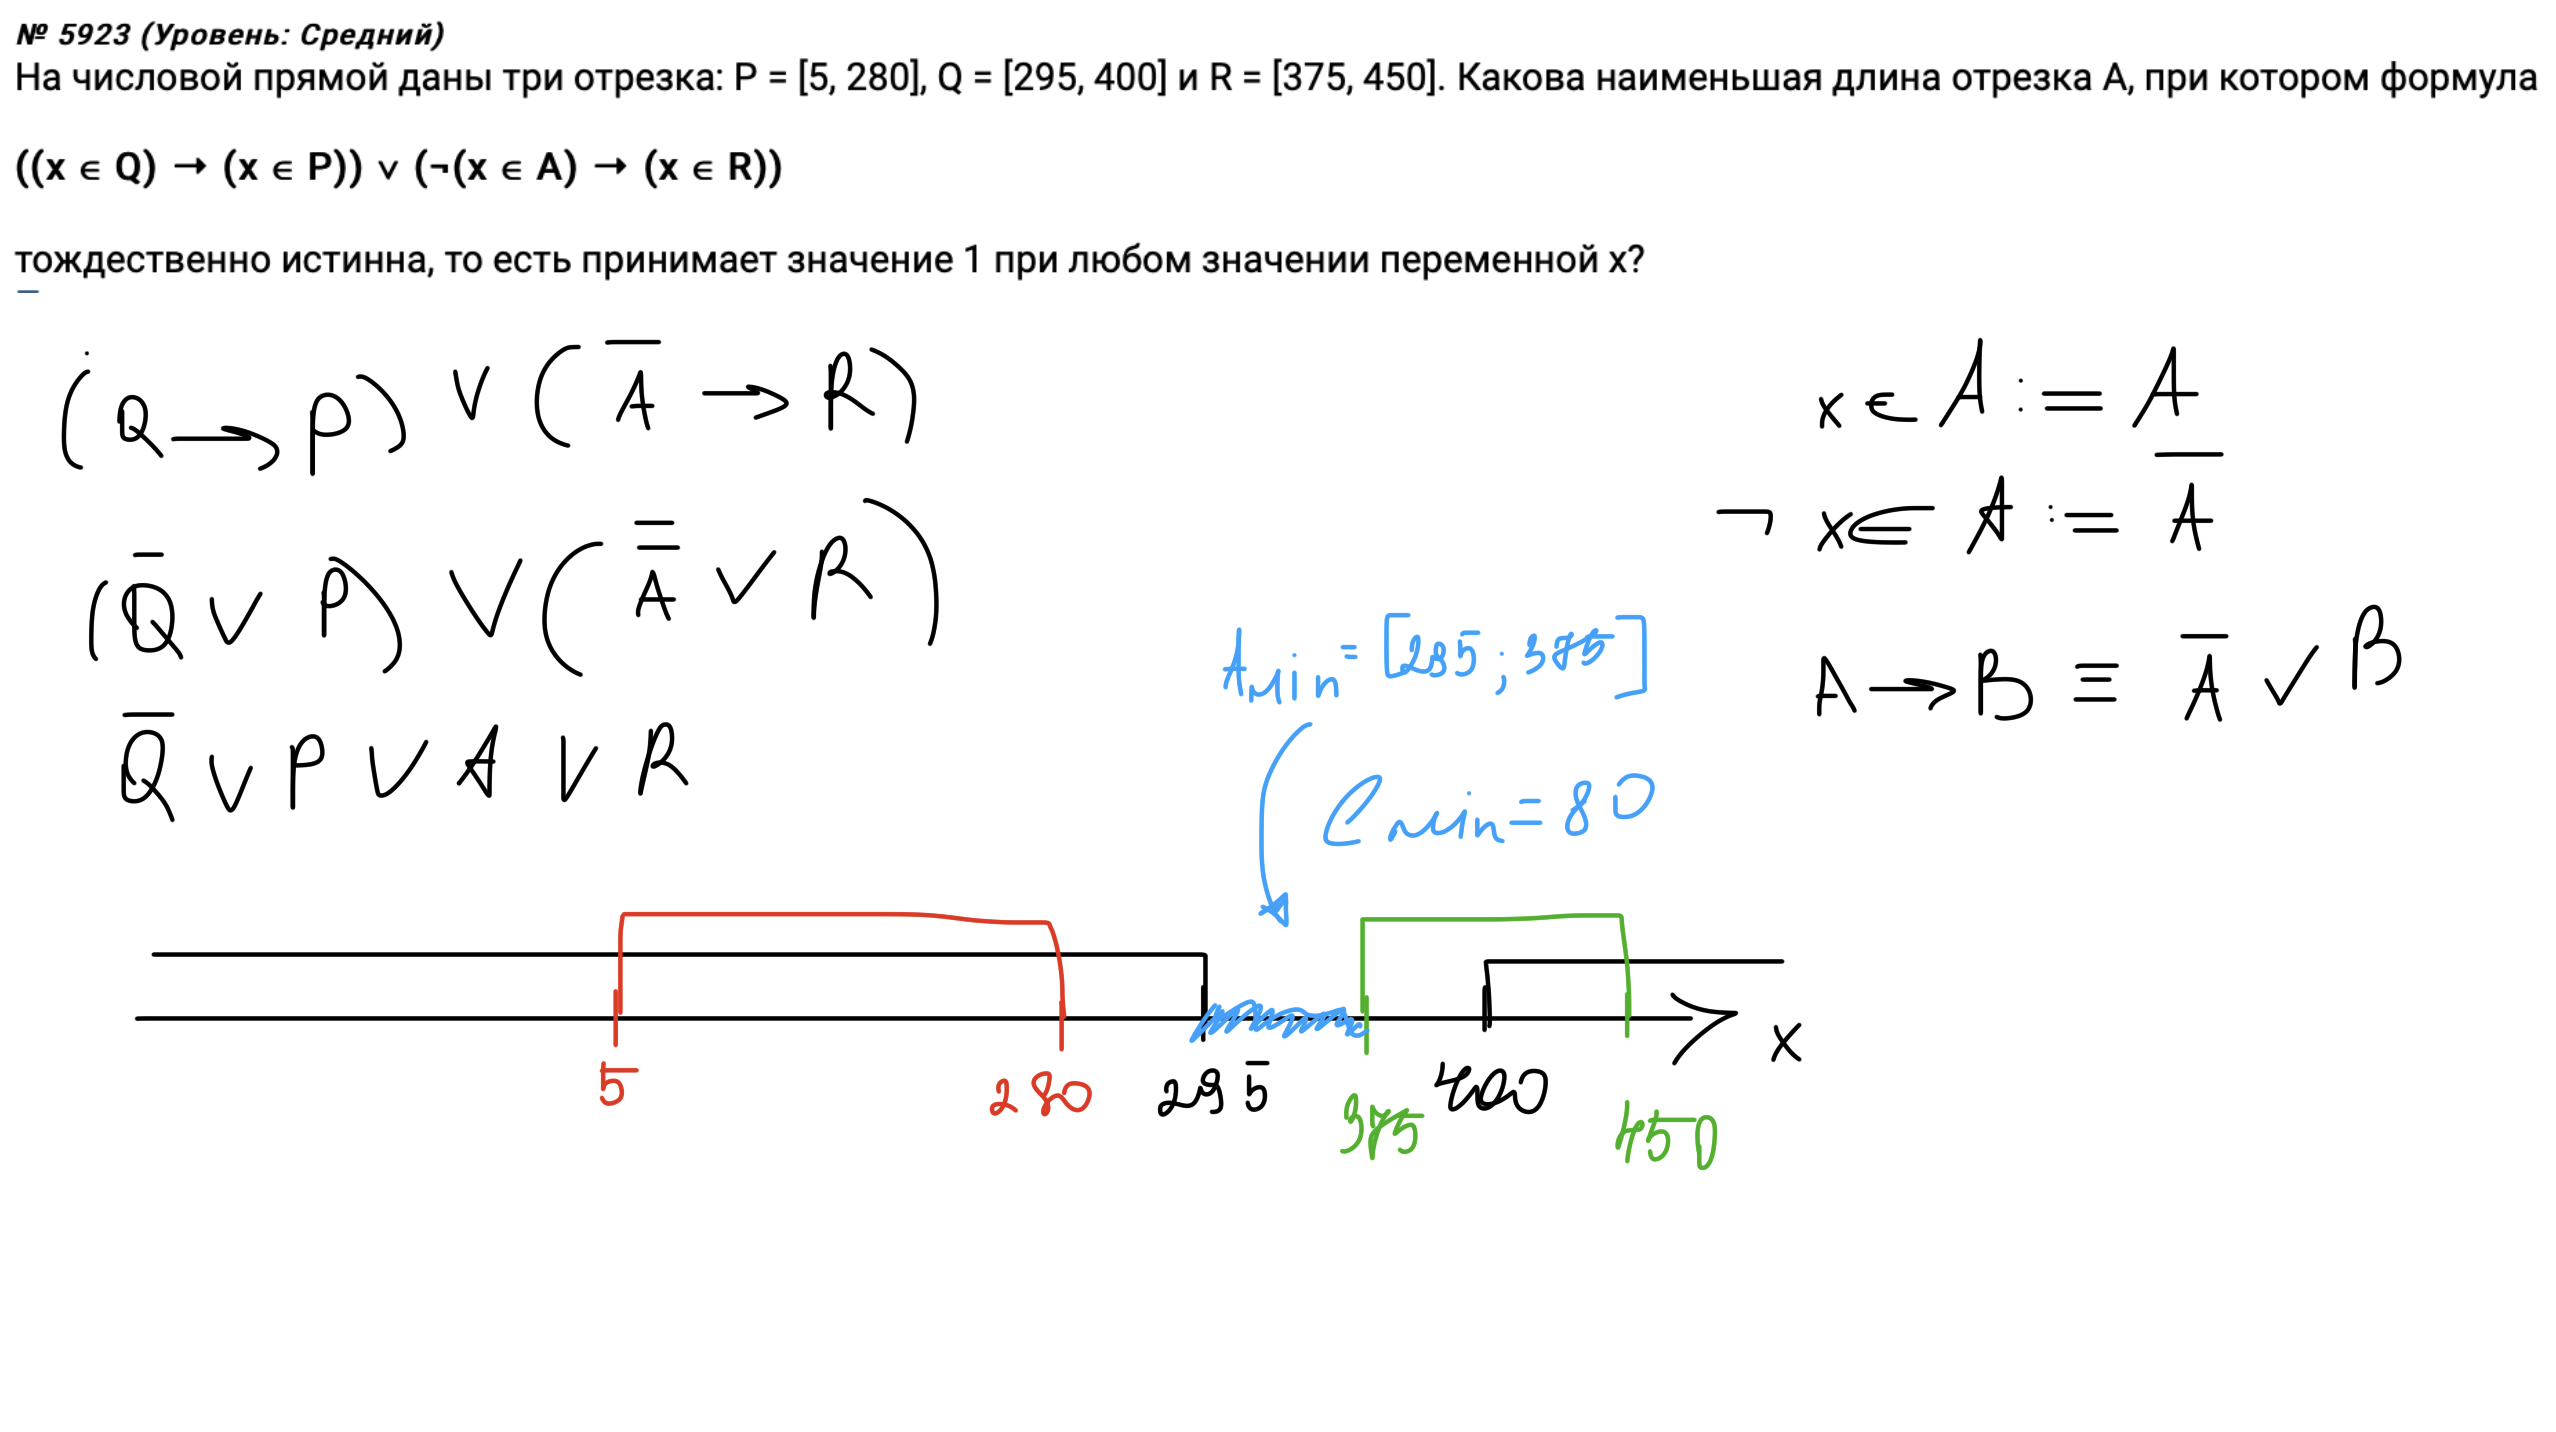 № 5923 (Уровень: Средний)
На числовой прямой даны три отрезка: P = [5, 280], Q = [295, 400] и R = [375, 450]. Какова наименьшая длина отрезка A, при котором формула
((x ∈ Q) → (x ∈ P)) ∨ (¬(x ∈ A) → (x ∈ R))
тождественно истинна, то есть принимает значение 1 при любом значении переменной x?
(Q → P) ∨ (A̅ → R)
(Q̅ ∨ P) ∨ (A̿ ∨ R)
Q̅ ∨ P ∨ A ∨ R
x ∈ A := A
¬ x ∈ A := A̅
A → B ≡ A̅ ∨ B
Amin = [295; 375]
ℓmin = 80
5 280 295 375 400 450 x